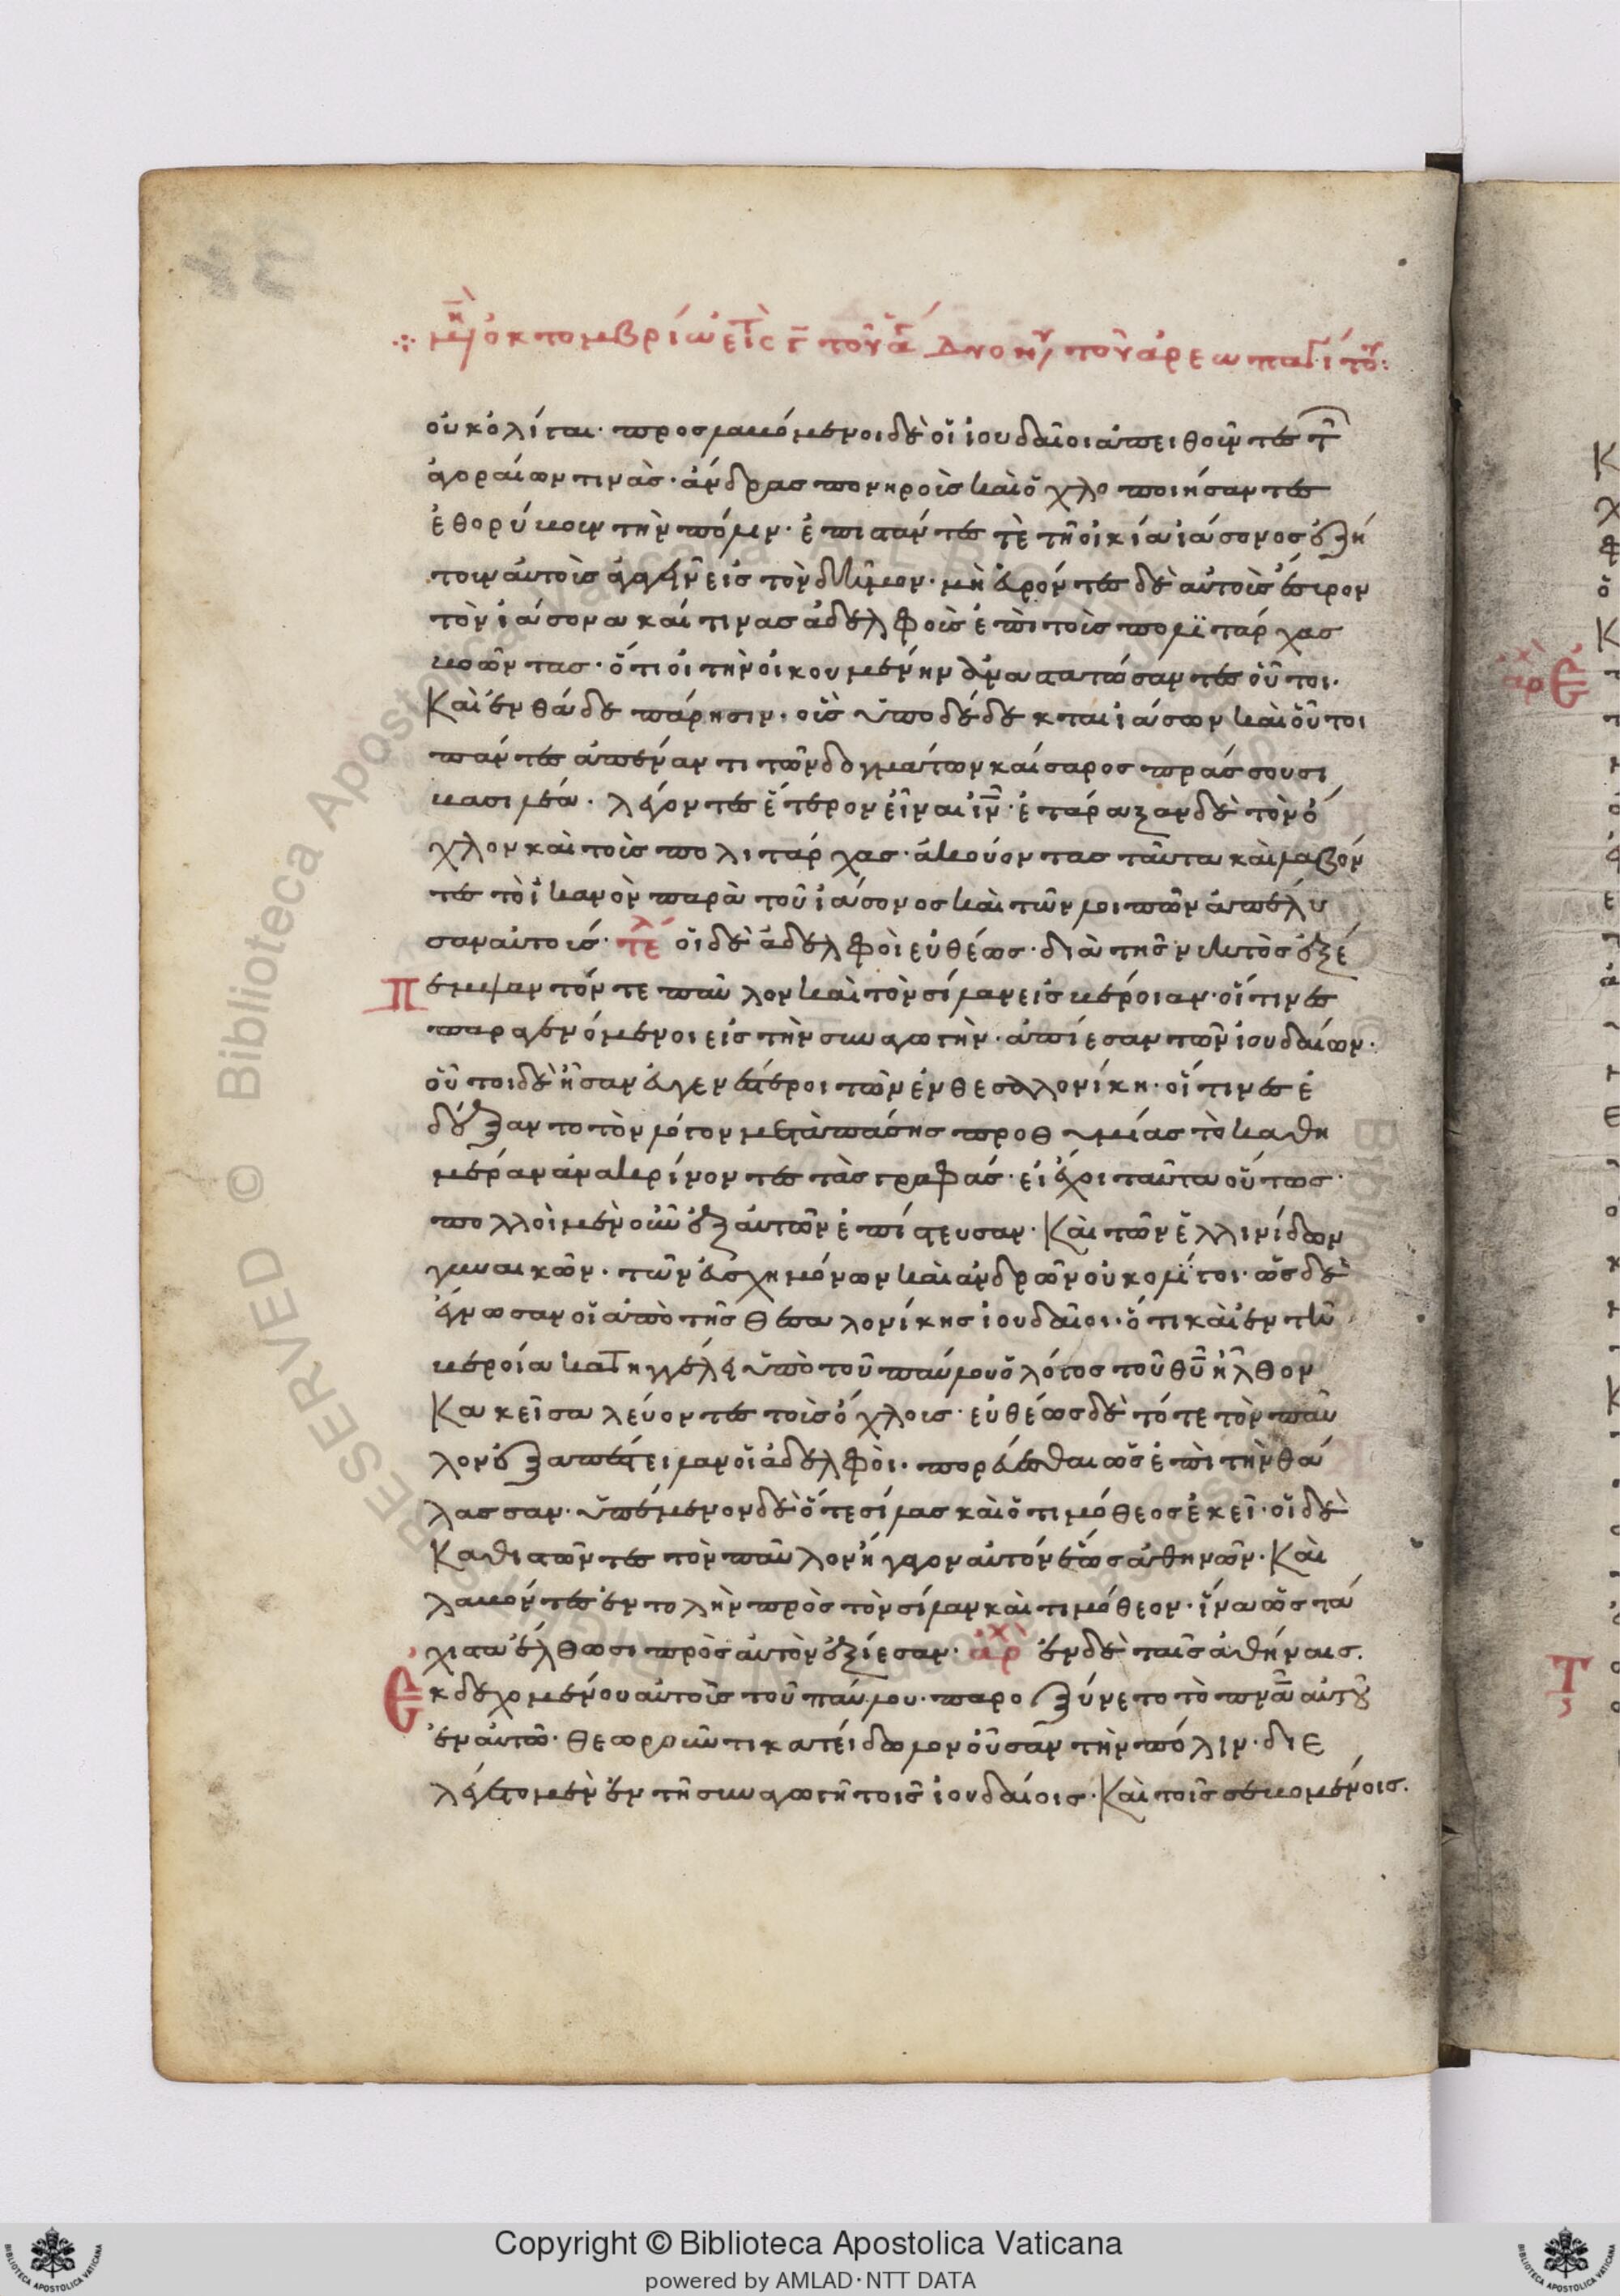 μηνὶ ὀκτομβρίω εἰς γ τοῦ ἁγ Διονυ τοῦ ἀρεωπαγίτου:
οὐκ ὀλίγαι· προσλαβόμενοι δὲ οἳ ἰουδαῖοι ἀπειθοῦντες τῶν
ἀγοραίων τινὰς· ἄνδρας πονηροὺς καὶ ὄχλο ποιήσαντες
ἐθορύβουν τὴν πόλιν· ἐπιστάντές τὲ τῆ οἰκία ἰάσονος ἐζή
τουν ἀυτοὺς ἀγαγεῖν εἰς τὸν δῆμον· μὴ εὑρόντες δὲ αὐτοὺς ἔσυρον
τὸν ἰάσονα καί τινας ἀδελφοὺς ἐπὶ τοὺς πολϊτάρχας
βοῶντας· ὅτι οἱ τὴν οἰκουμένην ἀναστατώσαντες οὗτοι·
Καὶ ἐνθάδε πάρησιν· οὓς ὑποδέδεκται ἰάσων καὶ οὗτοι
πάντες ἀπέναντι τῶν δογμάτων καίσαρος πράσσουσι
βασιλέα· λέγοντες ἕτερον εἶναι ἰν· ἐτάραξαν δὲ τὸν ὄ
χλον καὶ τοὺς πολιτάρχας· ἀκούοντας ταῦτα καὶ λαβόν
τες τὸ ἱκανὸν παρὰ τοῦ ἰάσονος καὶ τῶν λοιπῶν ἀπέλυ
σαν αὐτούς· τέλ οἱ δὲ ἀδελφοὶ εὐθέως· διὰ τῆς νυκτὸς ἐξέ
Πέμψαν τόν τε παῦλον καὶ τὸν σίλαν εἰς βέροιαν· οἵτινες
παραγενόμενοι εἰς τὴν συναγωγὴν· ἀπίεσαν τῶν ἰουδαίων·
οὗτοι δὲ ἦσαν εὐγενέστεροι τῶν ἐν θεσαλλονίκη· οἵτινες ἐ
δέξαντο τὸν λόγον μετὰ πάσης προθυμίας τὸ καθη
μέραν ἀνακρίνοντες τὰς γραφάς· εἰ ἔχοι ταῦτα οὕτως·
πολλοὶ μὲν οὖν ἐξ ἀυτῶν ἐπίστευσαν· Καὶ τῶν ἑλλινίδων
γυναικῶν· τῶν εὐσχημόνων καὶ ἀνδρῶν οὐκ ολΐγοι· ὡς δὲ
ἔγνωσαν οἳ ἀπὸ τῆς θεσαλονίκης ἰουδαῖοι· ὅτι καὶ ἐν τῆ
βεροία κατηγγέλη ὑπὸ τοῦ παύλου ὁ λόγος τοῦ θυ ἦλθον
Κακεῖ σαλεύοντες τοὺς ὄχλους· εὐθέως δὲ τότε τὸν παῦ
λον ἐξαπέστειλαν οἳ ἀδελφοὶ· πορεύεσθαι ὡς ἐπὶ τὴν θά
λασσαν· ὑπέμενον δὲ ὅ τε σίλας καὶ ὁ τιμόθεος ἐκεῖ· οἳ δὲ
Καθιστῶντες τὸν παῦλον ἤγαγον αὐτόν ἕως ἀθηνῶν· Καὶ
λαβόντες ἐντολὴν πρὸς τὸν σίλαν καὶ τιμόθεον· ἵνα ὡς τά
χιστα ἔλθωσι πρὸς αὐτὸν ἐξίεσαν· ἀρχ ἐν δὲ ταῖς ἀθήναις.
Εκδεχομένου αὐτοὺς τοῦ παύλου· παροξύνετο τὸ πνα αὐτοῦ
ἐν αὐτῶ· θεωροῦντι κατείδωλον οὖσαν τὴν πόλιν· διε
λέγετο μὲν ἐν τῆ συναγωγῆ τοῖς ἰουδαίοις· Καὶ τοῖς σεβομένοις.